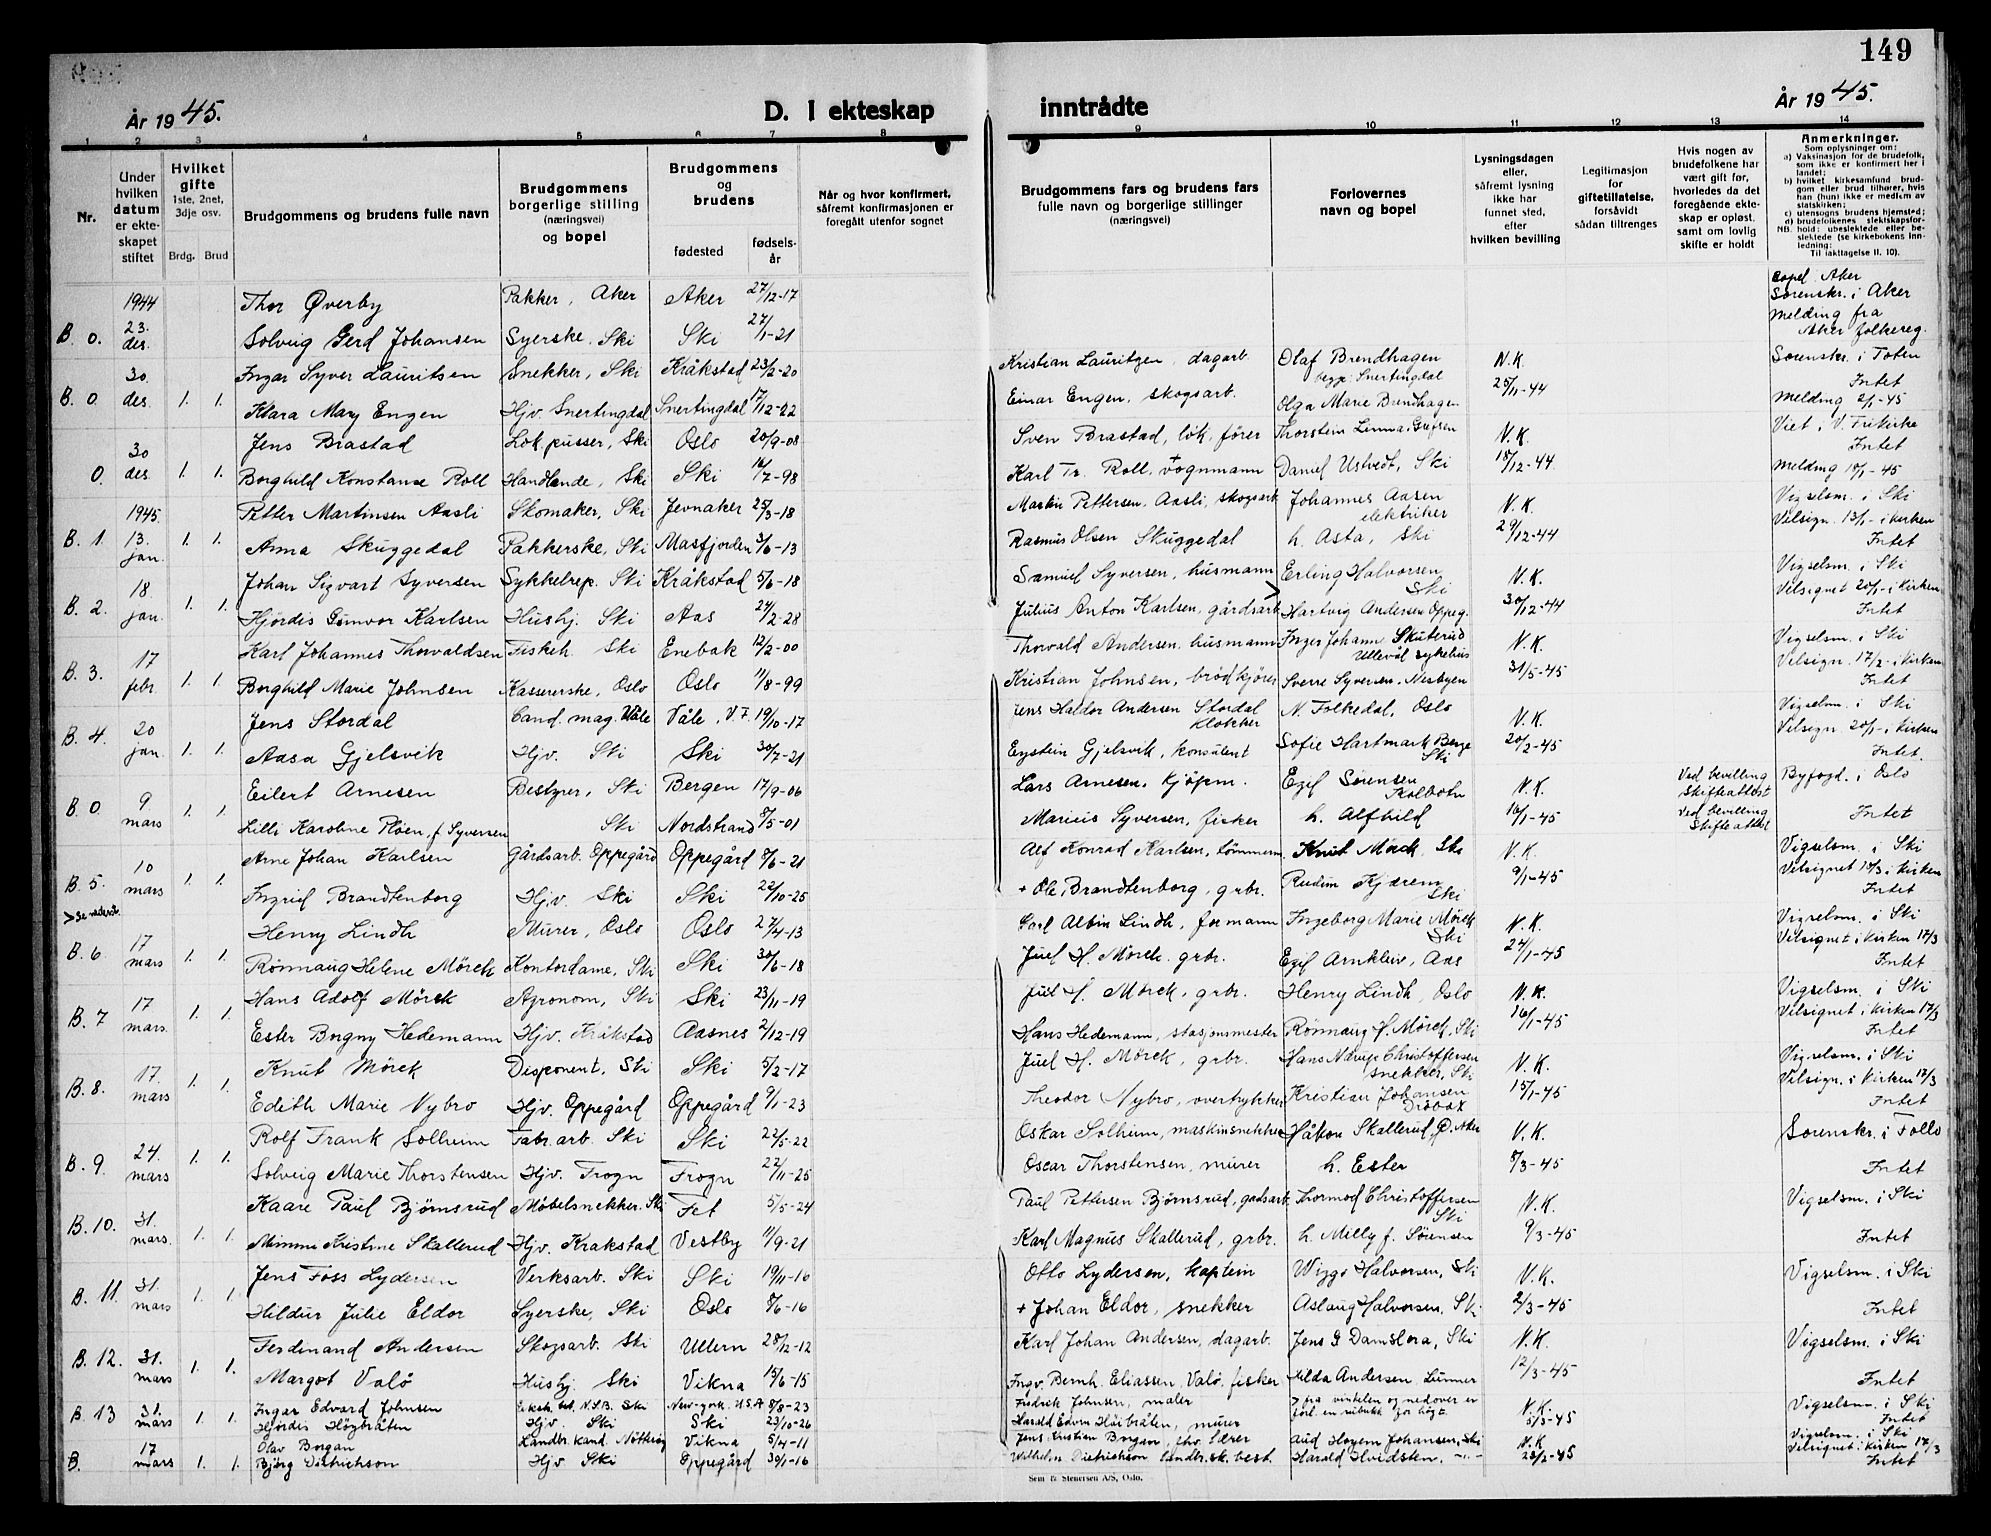 149
År 1945.
D. I ekteskap
inntrådte
År 1945.
1 2 3 4 5 6 7 8 9 10 11 12 13 14
Nr.
Under hvilken datum er ekteskapet stiftet
Hvilket gifte 1ste, 2net, 3dje osv.
Brdg. Brud
Brudgommens og brudens fulle navn
Brudgommens borgerlige stilling (næringsvei) og bopel
Brudgommens og brudens
fødested
fødselsår
Når og hvor konfirmert, såfremt konfirmasjonen er foregått utenfor sognet
Brudgommens fars og brudens fars fulle navn og borgerlige stillinger (næringsvei)
Forlovernes navn og bopel
Lysningsdagen eller, såfremt lysning ikke har funnet sted, efter hvilken bevilling
Legitimasjon for giftetillatelse, forsåvidt sådan tiltrenges
Hvis nogen av brudefolkene har vært gift før, hvorledes da det foregående ekteskap er opløst, samt om lovlig skifte er holdt
Anmerkninger.
Som oplysninger om:
a) Vaksinasjon for de brudefolk, som ikke er konfirmert her i landet;
b) hvilket kirkesamfund brudgom eller brud tilhører, hvis han (hun) ikke er medlem av statskirken;
c) utensogns brudens hjemsted;
d) brudefolkenes slektskapsforhold: ubeslektede eller beslektede (se kirkebokens innledning:
NB. Til iakttagelse II. 10).
1944 Thor Øverby Pakker, Aker Aker 27/12-17 Bopel Aker Sorenskr. i Aker
B. 0. 23. des. Solveig Gerd Johansen Syerske, Ski Ski 27/1-21 Melding fra Aker folkereg.
30. Ingar Syver Lauritsen Snekker, Ski Kråkstad 23/2-20 Kristian Lauritzen, dagarb. Olaf Brendhagen begge Snertingdal N.K. Sorenskr. i Toten Intet
B. 0 des. 1. 1. Klara Mary Engen Hjv. Snertingdal Snertingdal 17/12-22 Einar Engen, skogsarb. Olga Marie Brendhagen 25/11-44 Melding 2/1-45
30 Jens Brastad Lok.pusser, Ski Oslo 20/9-08 Sven Brastad, lok. fører Thorstein Linma, Grefsen N.K. Viet i V. Frikirke Intet
0. des. 1. 1. Borghild Konstanse Roll Handlende, Ski Ski 16/7-98 Karl Tr. Roll, + vognmann Daniel Ustvedt, Ski 18/12-44. Melding 10/1-45
1945 Petter Martinsen Aasli Skomaker, Ski Jevnaker 25/3-18 Martin Pettersen Aasli, skogsarb. Johannes Aasen elektriker N.K. Vigselsm. i Ski Velsign. 13/1- i Kirken
B. 1. 13. jan. 1. 1. Anna Skuggedal Pakkerske, Ski Masfjorden 3/6-13 Rasmus Olsen Skuggedal h. Asta, Ski 29/12-44 Intet
18. Johan Sigvart Syversen Sykkelrep. Ski Kråkstad 5/6-18 Samuel Syversen, husmann Erling Halvorsen Ski N.K. Vigselsm. i Ski Velsignet 20/1- i Kirken
B. 2. jan. 1. 1. Hjördis Gunvor Karlsen Hushj. Ski Aas 24/2-28 Julius Anton Karlsen, gårdsarb. Hartvig Andersen Oppeg. 30/12-44 Intet
17 Karl Johannes Thorvaldsen Fiskeh. Ski Enebak 12/2-00 Thorvald Andersen, husmann Inger Johann Skuterud Ullevål sykehus N.K. Vigselsm. i Ski Velsign. 17/2- i Kirken
B. 3. febr. 1. 1. Borghild Marie Johnsen Kassererske, Oslo Oslo 11/8-99 Kristian Johnsen, brødkjører Sverre Syversen, Nesbyen 31/5-45 Intet
20 Jens Stordal Cand. mag. Våle Våle, V.F. 19/10-17 Jens Haldor Andersen Stordal Klokker N. Folkedal, Oslo N.K. Vigselsm. i Ski Velsign 20/1- i Kirken
B. 4. jan. 1. 1. Aasa Gjelsvik Hjv. Ski Ski 30/7-21 Eystein Gjelsvik, konsulent Sofie Hartmark Berge Ski 20/2-45 Intet.
9 Eilert Arnesen Bestyrer, Ski Bergen 17/9-06 Lars Arnesen, kjøpm. Egil Sørensen Kolbotn N.K. Ved bevilling Skifteattest Byfogd. i Oslo
B. 0. mars 1. 1. Lilli Karoline Pløen, f. Syversen Ski Nordstrand 8/5-01 Marius Syversen, fisker h. Alfhild 16/1-45 Ved bevilling Skifteattest Intet
10 Arne Johan Karlsen Gårdsarb. Oppegård Oppegård 8/6-21 Alf Konrad Karlsen, tømmerm. Knut Mörck, Ski N.K. Vigselsm. i Ski Velsignet 10/3 i Kirken
B. 5. mars 1. 1. Ingrid Brandtenborg Hjv. Ski Ski 22/10-25 + Ole Brandtenborg, grbr. Rudun Kjærem Ski 9/1-45 Intet
> Se nederst.
17 Henry Lindh Murer, Oslo Oslo 27/4-13 Carl Albin Lindh, formann Ingeborg Marie Mörck Ski N.K. Vigselsm. i Ski Velsignet i Kirken 17/3
B. 6 mars 1. 1. Rönnaug Helene Mörck Kontordame, Ski Ski 30/6-18 Juel H. Mörck, grbr. Egil Arnklev, Aas 24/1-45 Intet
17 Hans Adolf Mörck Agronom, Ski Ski 23/11-19 Juel H. Mörck, grbr. Henry Lindh, Oslo N.K. Vigselsm. i Ski Velsignet i Kirken 17/3
B. 7 mars. 1. 1. Ester Borgny Hedemann Hjv. Kråkstad Aasnes 2/12-19 Hans Hedemann, stasjonmester Rönnaug H. Mörck, Ski 16/1-45 Intet
17. Knut Mörck Disponent, Ski Ski 5/2-17 Juel H. Mörck, grbr. Hans Narve Christoffersen snekker, Ski N.K. Vigselsm. i Ski Velsign. i Kirken 17/3
B. 8. mars 1. 1. Edith Marie Nybro Hjv. Oppegård Oppegård 9/1-23 Theodor Nybro, overtrykker Kristian Johansen Drøbak 15/1-45 Intet
24. Rolf Frank Solheim Fabr.arb. Ski Ski 22/5-22 Oskar Solheim, maskinsnekker Håkon Skallerud, Ø. Aker N.K. Sorenskr. i Follo
B. 9. mars 1. 1. Solveig Marie Thorstensen Hjv. Frogn Frogn 22/11-25 Oscar Thorstensen, murer h. Ester 8/3-45 Intet
31. Kaare Paul Bjørnsrud Møbelsnekker. Ski Fet 5/5-24 Paul Pettersen Bjørnsrud, gårdsarb. Thormod Christoffersen Ski N.K. Vigselsm. i Ski
B. 10. mars. 1. 1. Mimmi Kristine Skallerud Hjv. Kråkstad Vestby 11/9-21 Karl Magnus Skallerud, grbr. h. Milly f. Sörensen 9/3-45 Intet
31. Jens Foss Lydersen Verksarb. Ski Ski 19/11-16 Otto Lydersen, kaptein Wiggo Halvorsen, Ski N.K. Vigselsm. i Ski
B. 11. mars 1. 1. Hildur Julie Eldor Syerske, Ski Oslo 8/6-16 + Johan Eldor, snekker Aslaug Halvorsen, Ski 2/3-45 Intet
31. Ferdinand Andersen Skogsarb. Ski Ullern 28/12-12 Karl Johan Andersen, dagarb. Jens G Damslora, Ski N.K. Vigselsm. i Ski
B. 12. mars 1. 1. Margot Valö Hushj. Ski Vikna 15/6-15 Ingv. Bernh. Eliassen Valø, fisker Hilda Andersen Lunner 12/3-45 Intet
31. Ingar Edvard Johnsen Ekstr. bet. N.S.B. Ski New-york. U.S.A. 8/8-23 Fredrik Johnsen, maler > fra vinkelen og nedover er N.K. Vigselsm. i Ski
B. 13 mars 1. 1. Hjördis Högbråten Hjv. Ski Ski 23/10-26 Harald Edvin Huibråten, murer førl. en rubukk for høgt. 5/3-45 Intet
17 Olav Borgan Landbr.kand. Nöttery Vikna 5/4-11 Jens Kristian Borgan, fhv. lærer Aud Hoyem Johansen, Ski N.K. Vigselsm. i Ski Velsignet i Kirken 17/3
B. mars 1. 1. Bjørg Dietrichson Hjv Ski Oppegård 30/1-16 Wilhelm Dietrichson landbr.sk. best. Harald Hvidsten. -"- 28/2-45 Intet
Sem & Stenersen A/S, Oslo.